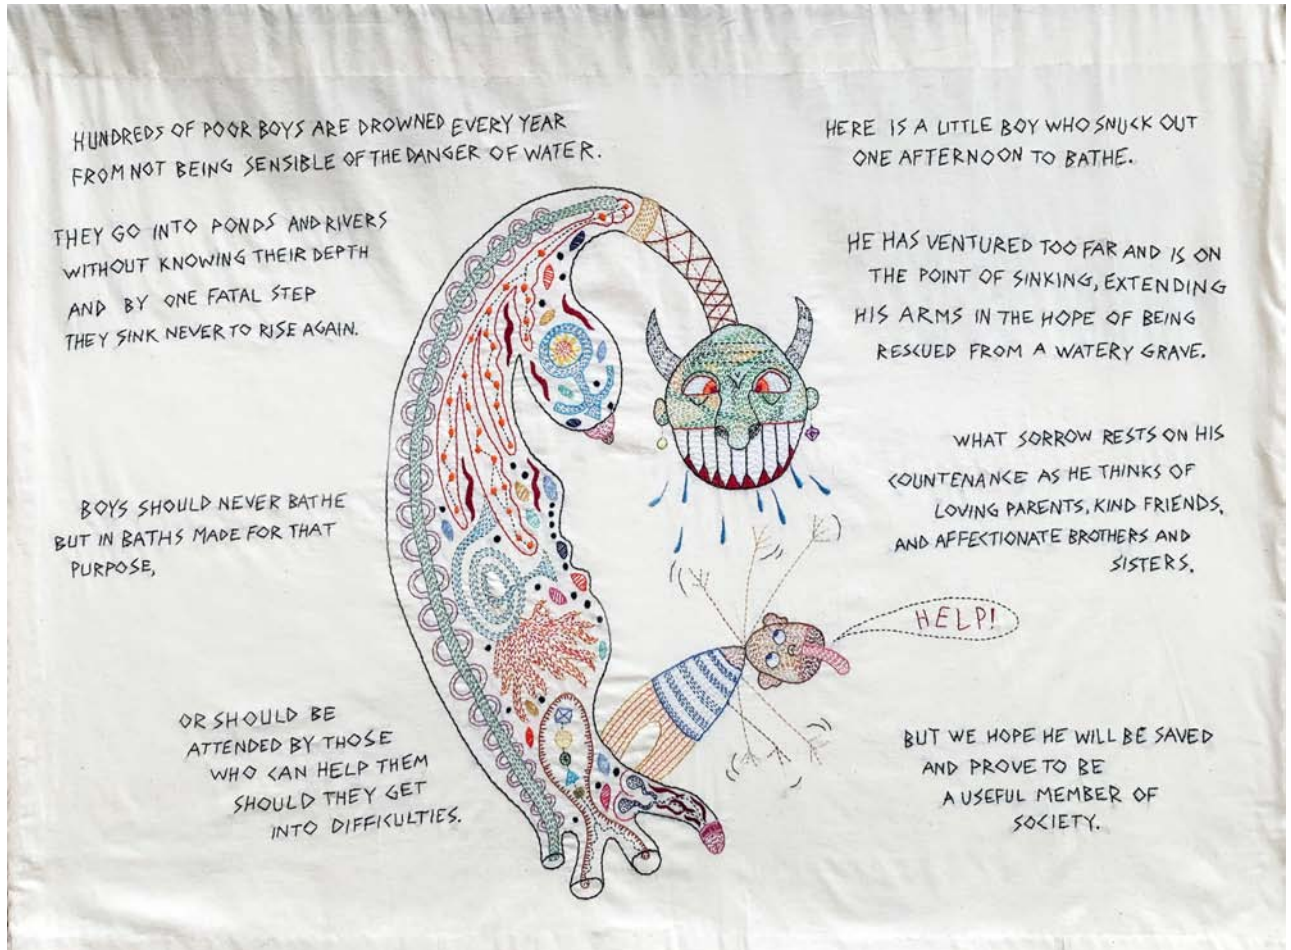 HUNDREDS OF POOR BOYS ARE DROWNED EVERY YEAR
FROM NOT BEING SENSIBLE OF THE DANGER OF WATER.
THEY GO INTO PONDS AND RIVERS
WITHOUT KNOWING THEIR DEPTH
AND BY ONE FATAL STEP
THEY SINK NEVER TO RISE AGAIN.
BOYS SHOULD NEVER BATHE
BUT IN BATHS MADE FOR THAT
PURPOSE,
OR SHOULD BE
ATTENDED BY THOSE
WHO CAN HELP THEM
SHOULD THEY GET
INTO DIFFICULTIES.
HERE IS A LITTLE BOY WHO SNUCK OUT
ONE AFTERNOON TO BATHE.
HE HAS VENTURED TOO FAR AND IS ON
THE POINT OF SINKING, EXTENDING
HIS ARMS IN THE HOPE OF BEING
RESCUED FROM A WATERY GRAVE.
WHAT SORROW RESTS ON HIS
COUNTENANCE AS HE THINKS OF
LOVING PARENTS, KIND FRIENDS,
AND AFFECTIONATE BROTHERS AND
SISTERS.
HELP!
BUT WE HOPE HE WILL BE SAVED
AND PROVE TO BE
A USEFUL MEMBER OF
SOCIETY.